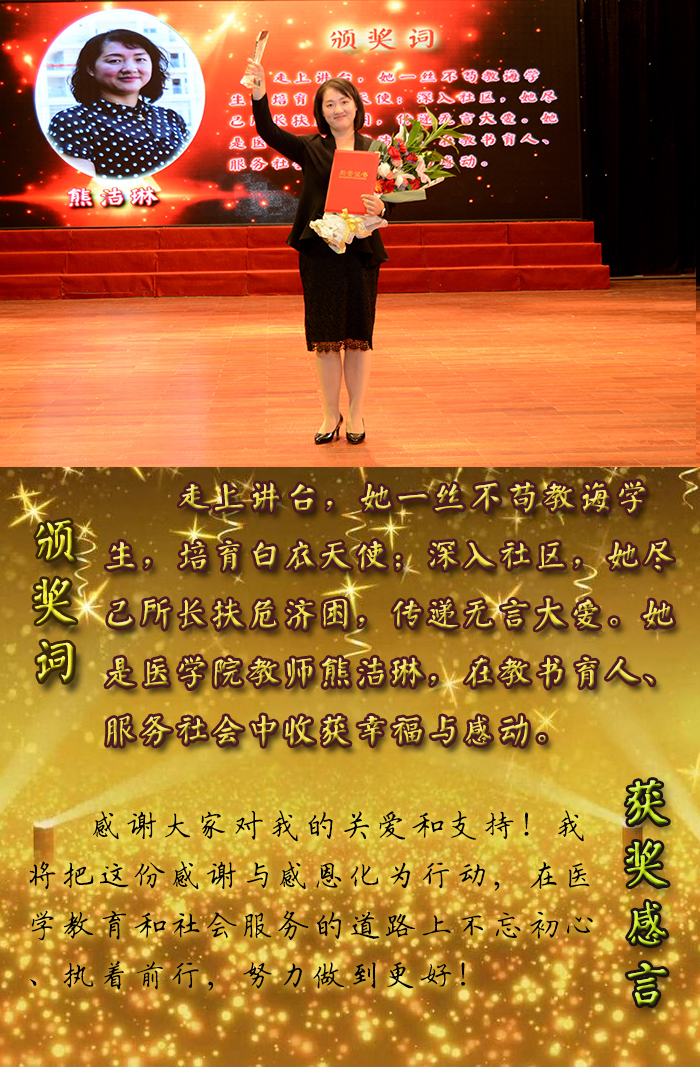 颁奖词
走上讲台，她一丝不苟教诲学
生，培育 天使；深入社区，她尽
己所长扶 困，传递无言大爱。她
是医 教书育人、
服务社 感动。
熊洁琳
颁奖词
走上讲台，她一丝不苟教诲学
生，培育白衣天使；深入社区，她尽
己所长扶危济困，传递无言大爱。她
是医学院教师熊洁琳，在教书育人、
服务社会中收获幸福与感动。
获奖感言
感谢大家对我的关爱和支持！我
将把这份感谢与感恩化为行动，在医
学教育和社会服务的道路上不忘初心
、执着前行，努力做到更好！